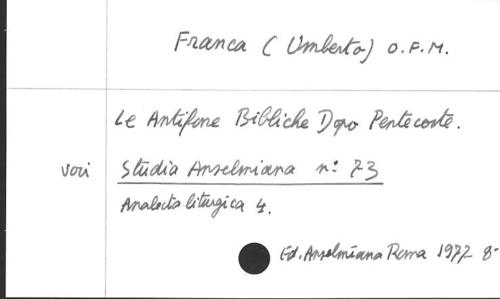 Franca (Umberto) O.F.M.
Le Antifone Bibliche Dopo Pentecoste.
voir Studia Anselmiana n: 73
Analecta liturgica 4.
Ed. Anselmiana Roma 1977 8-